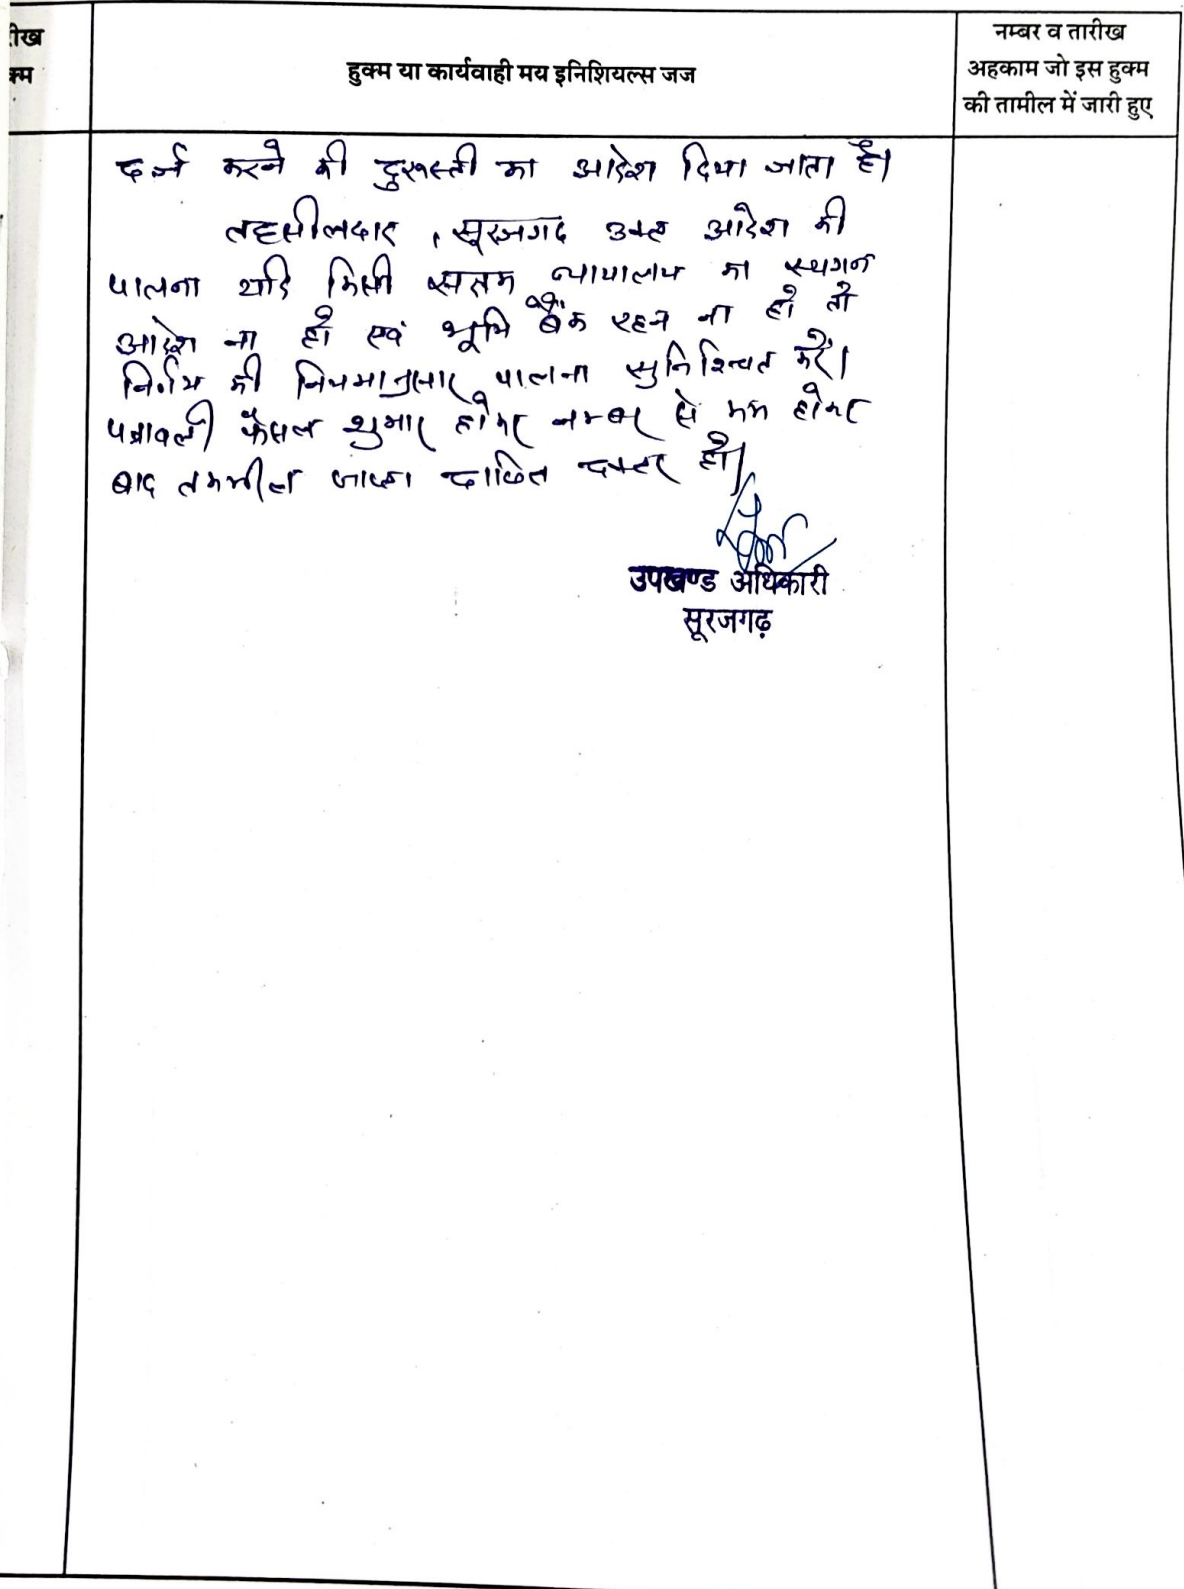 रीख
क्म
हुक्म या कार्यवाही मय इनिशियल्स जज
नम्बर व तारीख
अहकाम जो इस हुक्म
की तामील में जारी हुए
दर्ज करने की दुरूस्ती का आदेश दिया जाता है।
तहसीलदार, सूरजगढ उक्त आदेश की
पालना यदि किसी सक्षम न्यायालय का स्थगन
आदेश ना हो एवं भूमि बैंक रहन ना हो तो
निर्णय की नियमानुसार पालना सुनिश्चित करें।
पत्रावली फैसल शुमार होकर नम्बर से कम होकर
बाद तकमील जाब्ता दाखिल दफ्तर हो।
उपखण्ड अधिकारी
सूरजगढ़